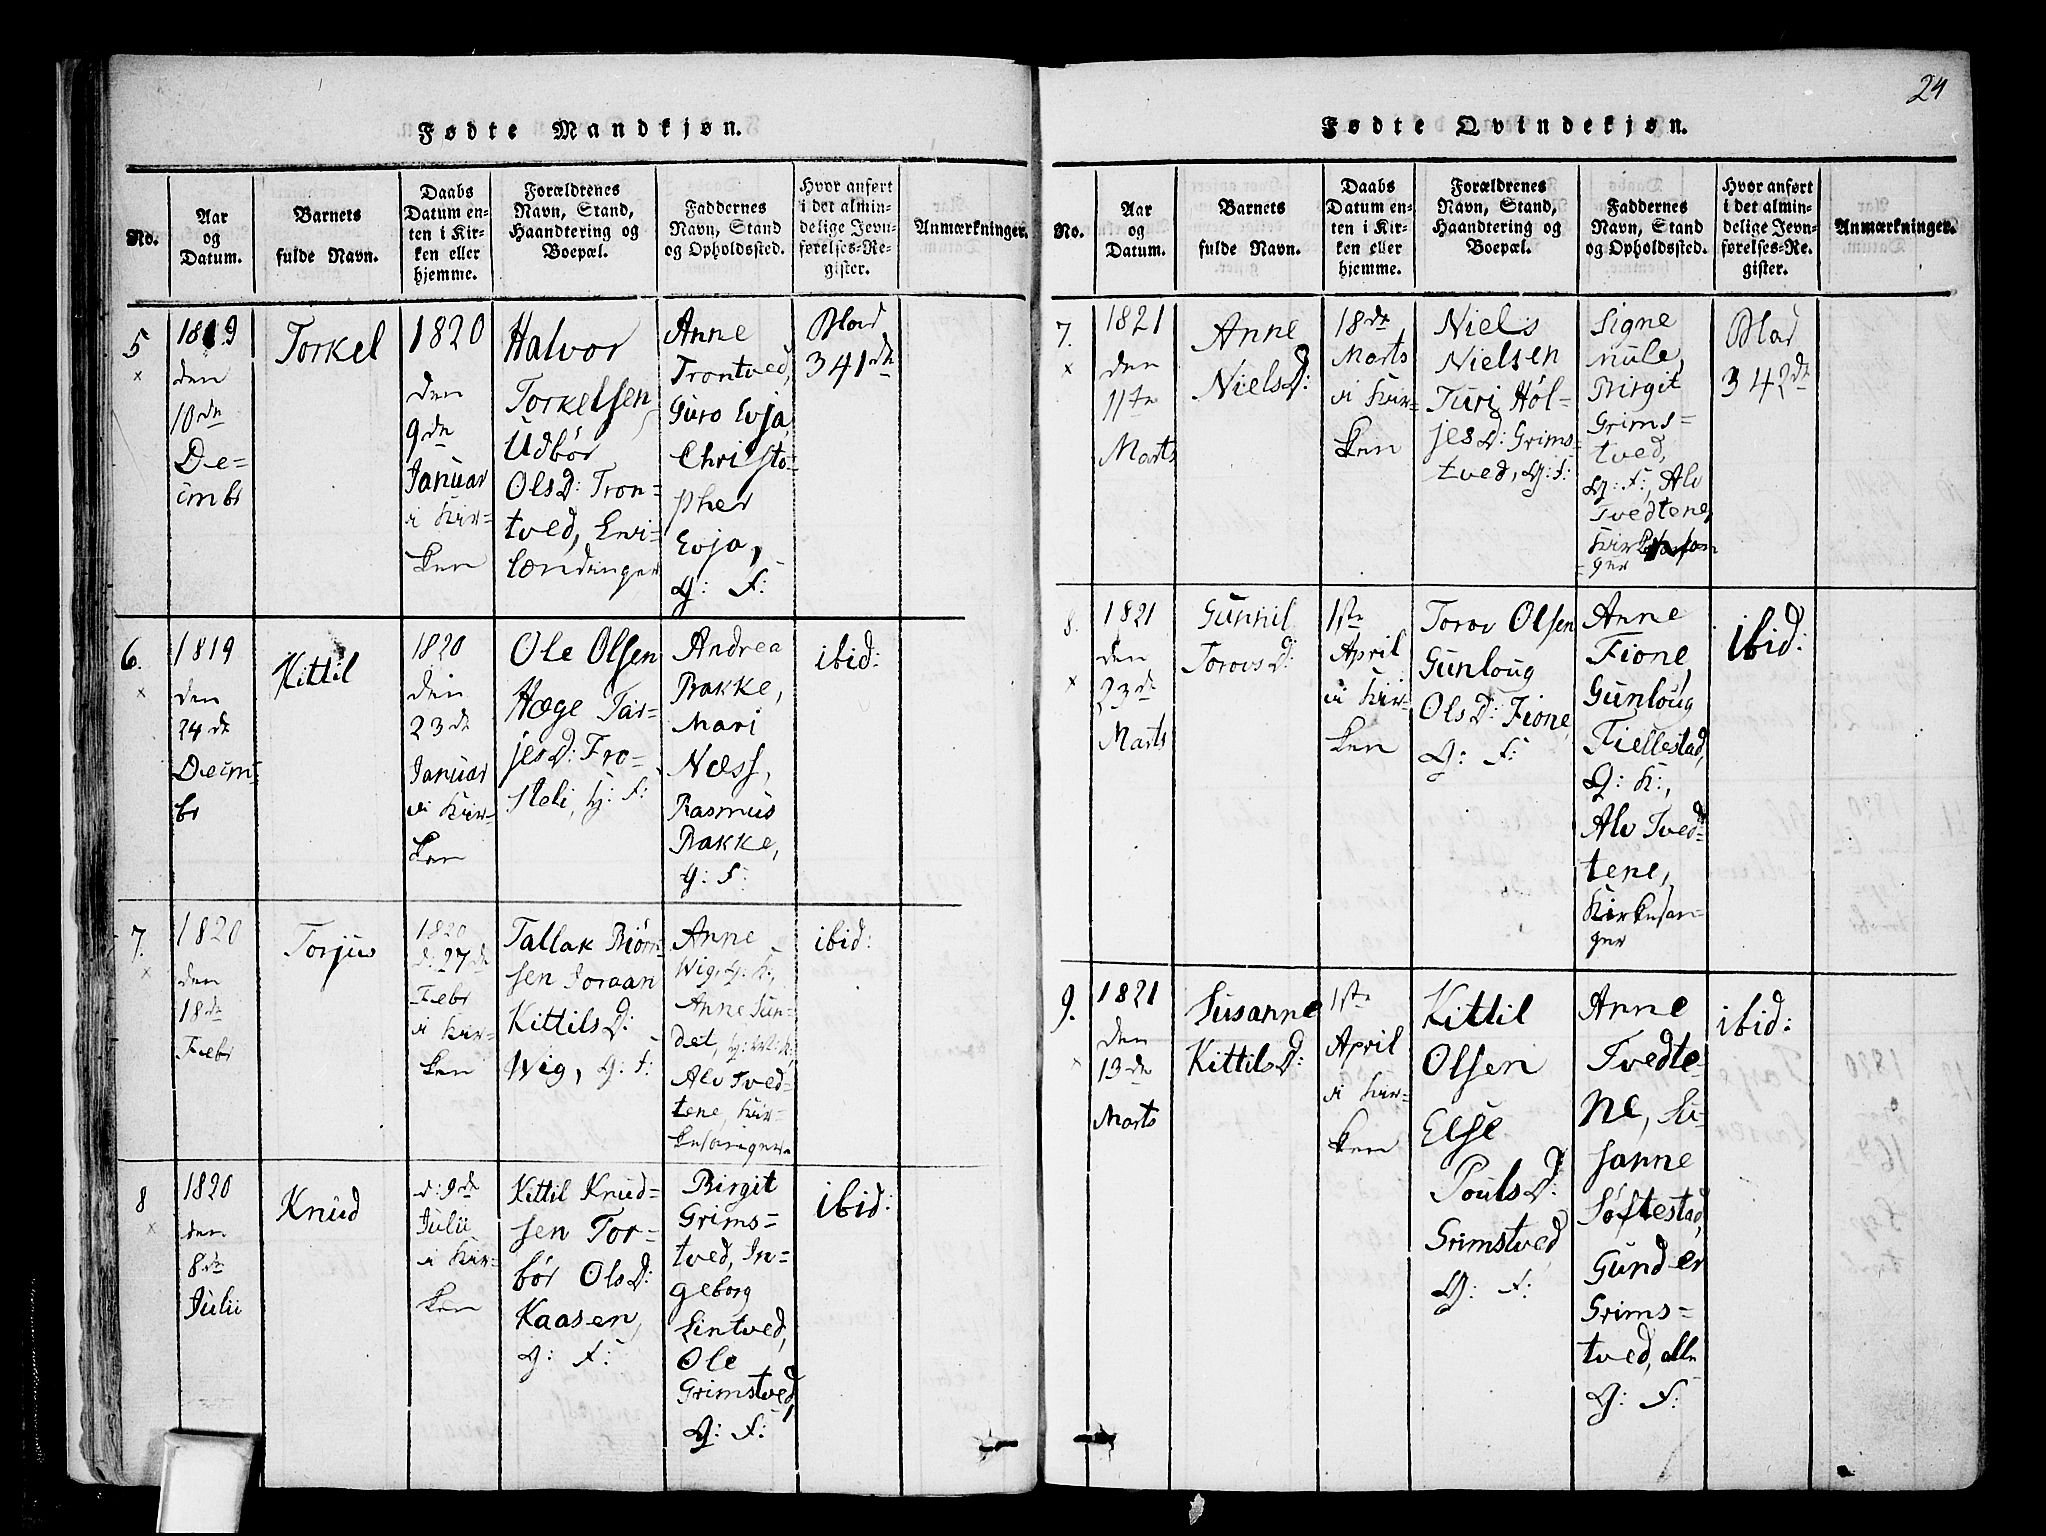 24
Fødte Mandkjøn.
No.
Aar
og
Datum.
Barnets
fulde Navn.
Daabs
Datum en-
ten i Kir-
ken eller
hjemme.
Forældrenes
Navn, Stand,
Haandtering og
Boepæl.
Faddernes
Navn, Stand
og Opholdssted.
Hvor anført
i det almin-
delige Jevn-
førelses-Re-
gister.
Anmærkninger.
5
×
1819
den
10de
De-
cmbr
Torkel
1820
den
9de
Januar
i Kir-
ken
Halvor
Torkelsen
Udbør
OlsD: Tron-
tved,
Anne
Trontved,
Guro Evja,
Christo-
pher
Evja,
G: F:
Blad
341de
6.
×
1819
den
24de
Decm-
br
Kittil
1820
den
23de
Januar
i Kir-
ken
Ole Olsen
Hæge Tar-
jesD: Fro-
steli, H: F:
Andrea
Bakke,
Mari
Næss,
Rasmus
Bakke,
G: F:
ibid:
7.
×
1820
den
18de
Febr
Torjus
1820
d: 27de
Febr
i Kir-
ken
Tallak Biørn-
sen Joraan
KittilsD:
Wig, G: F:
Anne
Wig, G: K:,
Anne Sun-
det,
Alv Tved-
tene, Kir-
kesanger
ibid:
8
×
1820
den
8de
Julii
Knud
d: 9de
Julii
i Kir-
ken
Kittil Knud-
sen Tor-
bør OlsD:
Kaasen,
G: F:
Birgit
Grims-
tved, In-
geborg
Lintved,
Ole
Grimstved,
G: F:
ibid:
Fødte Qvindekjøn.
No.
Aar
og
Datum.
Barnets
fulde Navn.
Daabs
Datum en-
ten i Kir-
ken eller
hjemme.
Forældrenes
Navn, Stand,
Haandtering og
Boepæl.
Faddernes
Navn, Stand
og Opholdssted.
Hvor anført
i det almin-
delige Jevn-
førelses-Re-
gister.
Anmærkninger.
7.
×
1821
den
11te
Marts
Anne
NielsD:
18de
Marts
i Kir-
ken
Niels
Nielsen
Turi Høl-
jesD: Grims-
tved, G: F:
Signe
Mule,
Birgit
Grims-
tved,
G: F:, Alv
Tvedtene,
Kirkesan-
ger
Blad
342de
8.
×
1821
den
23de
Marts
Gunnil
TorovsD:
1ste
April
i Kir-
ken
Torov Olsen
Gunloug
OlsD: Fione,
G: F:
Anne
Fione,
Gunloug
Fiellestad,
G: K:,
Alv Tved-
tene,
Kirkesan-
ger
ibid:
9.
×
1821
den
13de
Marts
Susanne
KittilsD:
1ste
April
i Kir-
ken
Kittil
Olsen
Else
PoulsD:
Grimstved,
G: F:
Anne
Tvedte-
ne, Su-
sanne
Søftestad,
Gunder
Grims-
tved, alle
G: F:
ibid: